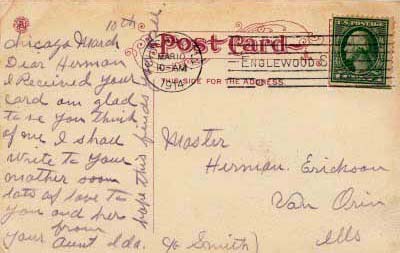 10th
Chicago March
Dear Herman
I Received your
card am glad
to se you think
of me I shall
write to your
mother soon
lots of love to
you and her
from
your Aunt Ida.
hope this finds
Post Card
MAR 10
10-AM
1914
ENGLEWOOD S
THIS SIDE FOR THE ADDRESS.
U.S. POSTAGE
Master
Herman. Erickson
Van Orin
Ills
c/o Smith)